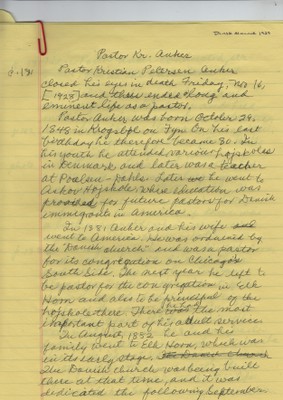 Pastor Kr. Anker
Pastor Kristian Petersen Anker
closed his eyes in death Friday, Nov. 16,
[1928] and these ended a long and
eminent life as a pastor.
Pastor Anker was born October 29,
1848 in Krogsbøl on Fyn. On his last
birthday he therefore became 80. In
his youth he attended various højskoles
in Denmark, and later was a teacher
at Later he went to
Askov Højskole, where education was
provided for future pastors for Danish
immigrants in America.
In 1881 Anker and his wife
went to America. He was ordained by
the "Danish church" and was a pastor
for its congregation on Chicago's
South Side. The next year he left to
be pastor for the congregation in Elk
Horn and also to be principal of the
højskole there. There he had the most
important part of his adult service.
In August, 1882 he and his
family went to Elk Horn, which was
in its early stage.
The Danish church was being built
there at that time, and it was
dedicated the following September.